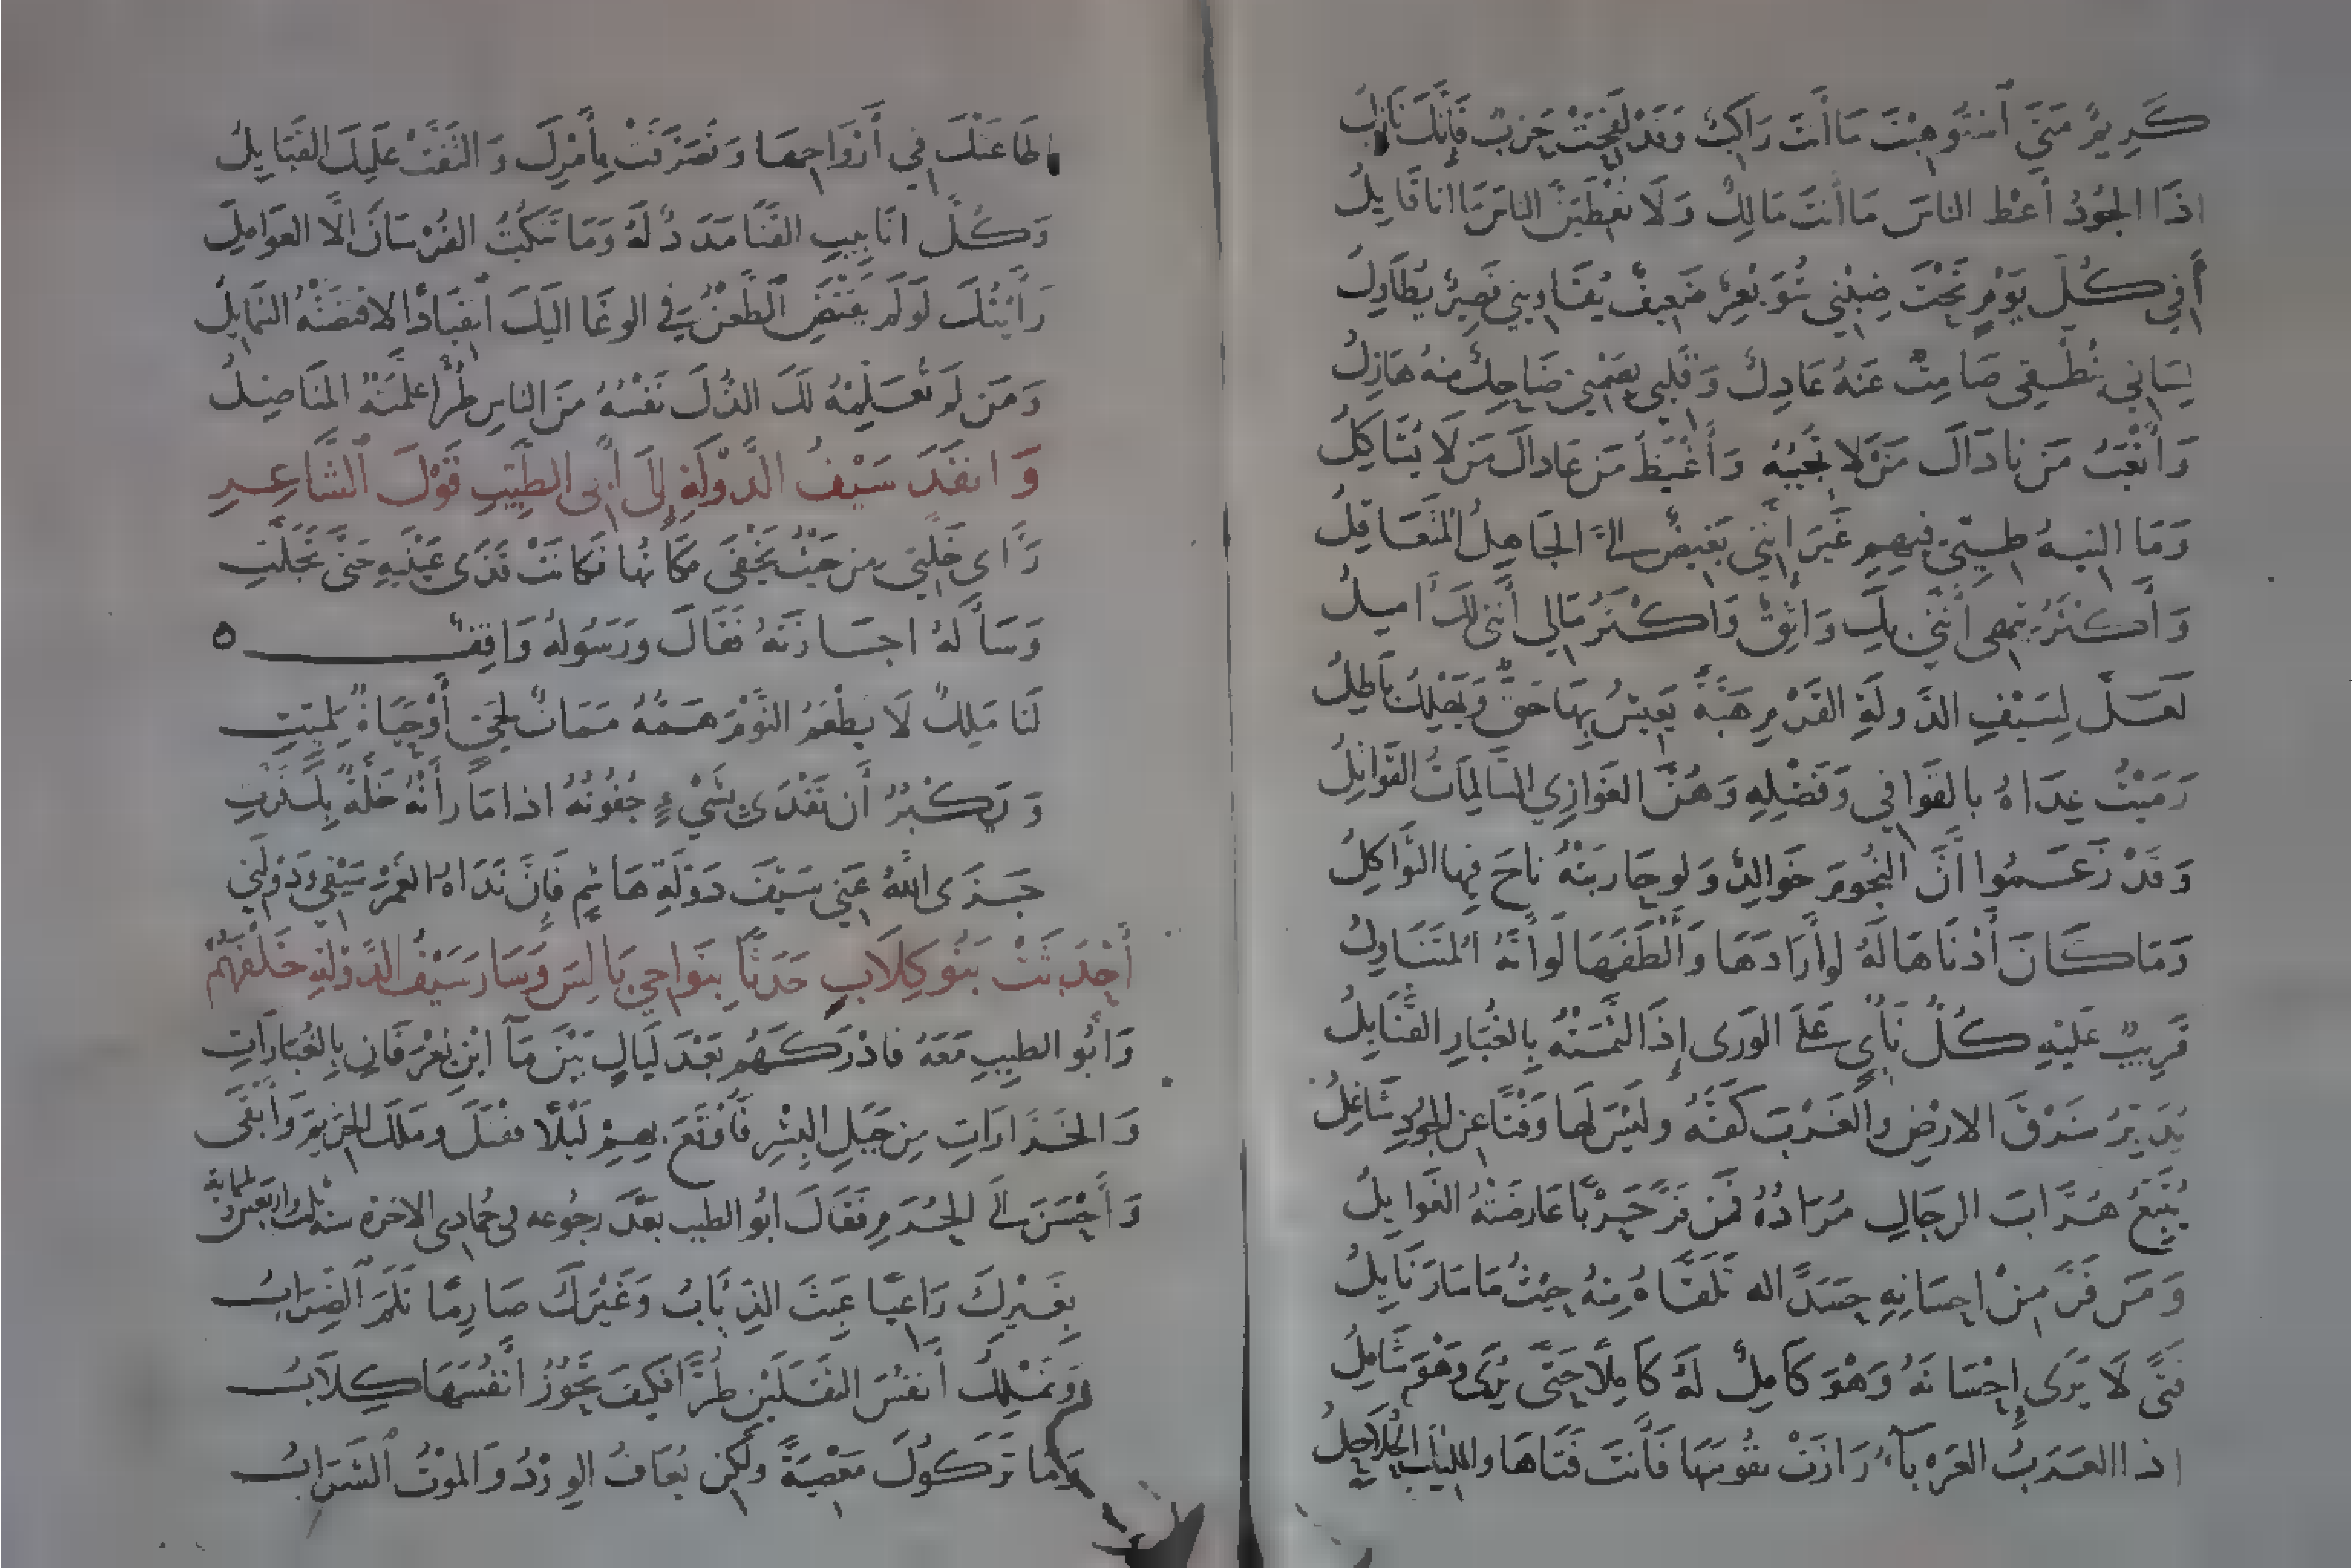 كَرِيمٌ مَتَى اسْتُوهِبْتَ مَا أَنْتَ رَاكِبٌ وَقَدْ لَقِحَتْ حَرْبٌ فَإِنَّكَ نَازِلُ
اذَا الجُودُ أَعْطِ الناسَ مَا أَنتَ مَالِكٌ وَلَا تُعْطِيَنَّ الناسَ مَا انا قَايِلُ
أَفِي كُلِّ يَوْمٍ تَحْتَ ضِبْنِي شُوَيْعِرٌ ضَعِيفٌ يُقَاوِينِي قَصِيرٌ يُطَاوِلُ
لِسَانِي بِنُطْقِي صَامِتٌ عَنهُ عَادِلٌ وَقَلْبِي بِصَمْتِي ضَاحِكٌ مِنهُ هَازِلُ
وَأَتْعَبُ مَن نَادَاكَ مَنْ لا تُجِيبُهُ وَأَغْيَظُ مَن عَادَاكَ مَن لَا يُشَاكِلُ
وَمَا التِيهُ طِبِّي فِيهِمِ غَيْرَ إِنَّنِي بَغِيضٌ إِلَيَّ الجَاهِلُ المُتَعَاقِلُ
وَأَكْثَرُ تِيهِي أَنَّنِي بِكَ وَاثِقٌ وَأَكْثَرُ مَالِي أَنَّنِي لَكَ آمِيلُ
لَعَلَّ لِسَيْفِ الدَولَةِ القَرْمِ هَبَّةً يَعِيشُ بِهَا حَقٌّ وَيَهْلِكُ بَاطِلُ
رَمَيْتُ عِدَاهُ بالقَوَافِي وَفَضْلِهِ وَهُنَّ الغَوَازِي السَّالِمَاتُ القَوَاتِلُ
وَقَدْ زَعَمُوا أَنَّ النُّجُومَ خَوَالِدٌ وَلو حَارَبَتْهُ نَاحَ فِيهَا الثَّوَاكِلُ
وَمَا كَانَ أَدْنَاهَا لَهُ لو أَرَادَهَا وَأَلْطَفَهَا لَو أَنَّهُ المُتَنَاوِلُ
قَرِيبٌ عَلَيْهِ كُلُّ نَأْيٍ عَلَى الوَرَى إِذَا لَثَّمَتْهُ بِالغُبَارِ القَنَابِلُ
يُدَبِّرُ شَرْقَ الارْضِ وَالغَرْبَ كَفُّهُ وليْسَ لَهَا وَقْتًا عن الجُودِ شَاغِلُ
يُتَبِّعُ هُرَّابَ الرِجَالِ مُرَادُهُ فَمَن فَرَّ حَرْبًا عَارَضَتْهُ الغَوَايِلُ
وَمَن فَرَّ مِنْ احسَانِهِ حَسَدًا له تَلَقَّاهُ مِنهُ حَيْثُ مَا سَارَ نَايِلُ
فَتًى لَا يَرَى إِحْسَانَهُ وَهْوَ كَامِلٌ لَهُ كَامِلًا حَتَّى يُرَى وَهْوَ شَامِلُ
اذا العَرَبُ العَرْبَآءُ رَازَتْ نفُوسَهَا فَأَنتَ فَتَاهَا والمَلِيكُ الحُلَاحِلُ
اطَاعَتْكَ فِي أَرْوَاحِهَا وَتَصَرَّفَتْ بِأَمْرِكَ وَالْتَفَّتْ عَلَيكَ القَبَايِلُ
وَكُلُّ انَابِيبِ القَنَا مَدَدٌ لَهُ وَمَا تَنْكُتُ الفُرْسَانَ الَّا العَوَامِلُ
رَأَيْتُكَ لَو لَم يَقْتَضِ الطَّعْنُ فِي الوغَا اليكَ انقِيَادًا لاقتَضَتْهُ الشَمَايِلُ
وَمَن لَم تُعَلِّمْهُ لَكَ الذُلَّ نَفْسُهُ مِنَ الناسِ طُرًّا عَلَّمَتْهُ المَنَاصِلُ
وَانفَذَ سَيْفُ الدَّوْلَةِ إِلَى أَبِي الطَّيِّبِ قَوْلَ الشَّاعِرِ
رَأَى خَلَّتِي مِن حَيْثُ يَخْفَى مَكَانُهَا فَكَانَتْ قَذَى عَيْنَيْهِ حَتَّى تَجَلَّتِ
وَسَأَلَهُ اجَازَتَهُ فَقَالَ وَرَسُولُهُ وَاقِفٌ ه
لَنَا مَلِكٌ لَا يَطْعَمُ النَّوْمَ هَمُّهُ مَمَاتٌ لِحَيٍّ أَوْ حَيَاةٌ لِمَيِّتِ
وَيَكْبُرُ أَن تَقْذَى بِشَيْءٍ جُفُونُهُ اذا مَا رَأَتْهُ خَلَّةٌ بِكَ فَرَّتِ
جَزَى اللَّهُ عَنِّي سَيْفَ دَوْلَةِ هَاشِمٍ فَإِنَّ نَدَاهُ الغَمْرَ سَيْفِي وَدَوْلَتِي
أَحْدَثَتْ بَنُو كِلَابٍ حَدَثًا بِنَوَاحِي بَالِسَ وَسَارَ سَيْفُ الدَّوْلَةِ خَلْفَهُمْ
وَأَبُو الطيِبِ مَعَهُ فَادْرَكَهُم بَعْدَ لَيَالٍ بَيْنَ مَآ ابْنِ يُعْرَفَانِ بِالغُبَارَاتِ
وَالخَرَّارَاتِ مِن جَبَلِ البِشْرِ فَأَوْقَعَ بِهِمِ لَيْلًا فقَتَلَ ومَلَكَ الحَرِيمَ وَأَبْقَى
وَأَحْسَنَ إِلَى الحُرَمِ فَقَالَ أبُو الطيب بَعْدَ رجُوعِه في جُمَادى الاخرَه سنه ثلث واربعين وثلثمايه
بِغَيْرِكَ رَاعِيًا عَبِثَ الذِئَابُ وَغَيْرَكَ صَارِمًا ثَلَمَ الضِّرَابُ
وَتَمْلِكُ أَنفُسَ الثَّقَلَيْنِ طُرًّا فَكَيْفَ تَحُوزُ أَنْفُسَهَا كِلَابُ
وَمَا تَرَكُوكَ مَعْصِيَةً وَلَكِن يُعَافُ الوِرْدُ وَالمَوْتُ الشَّرَابُ